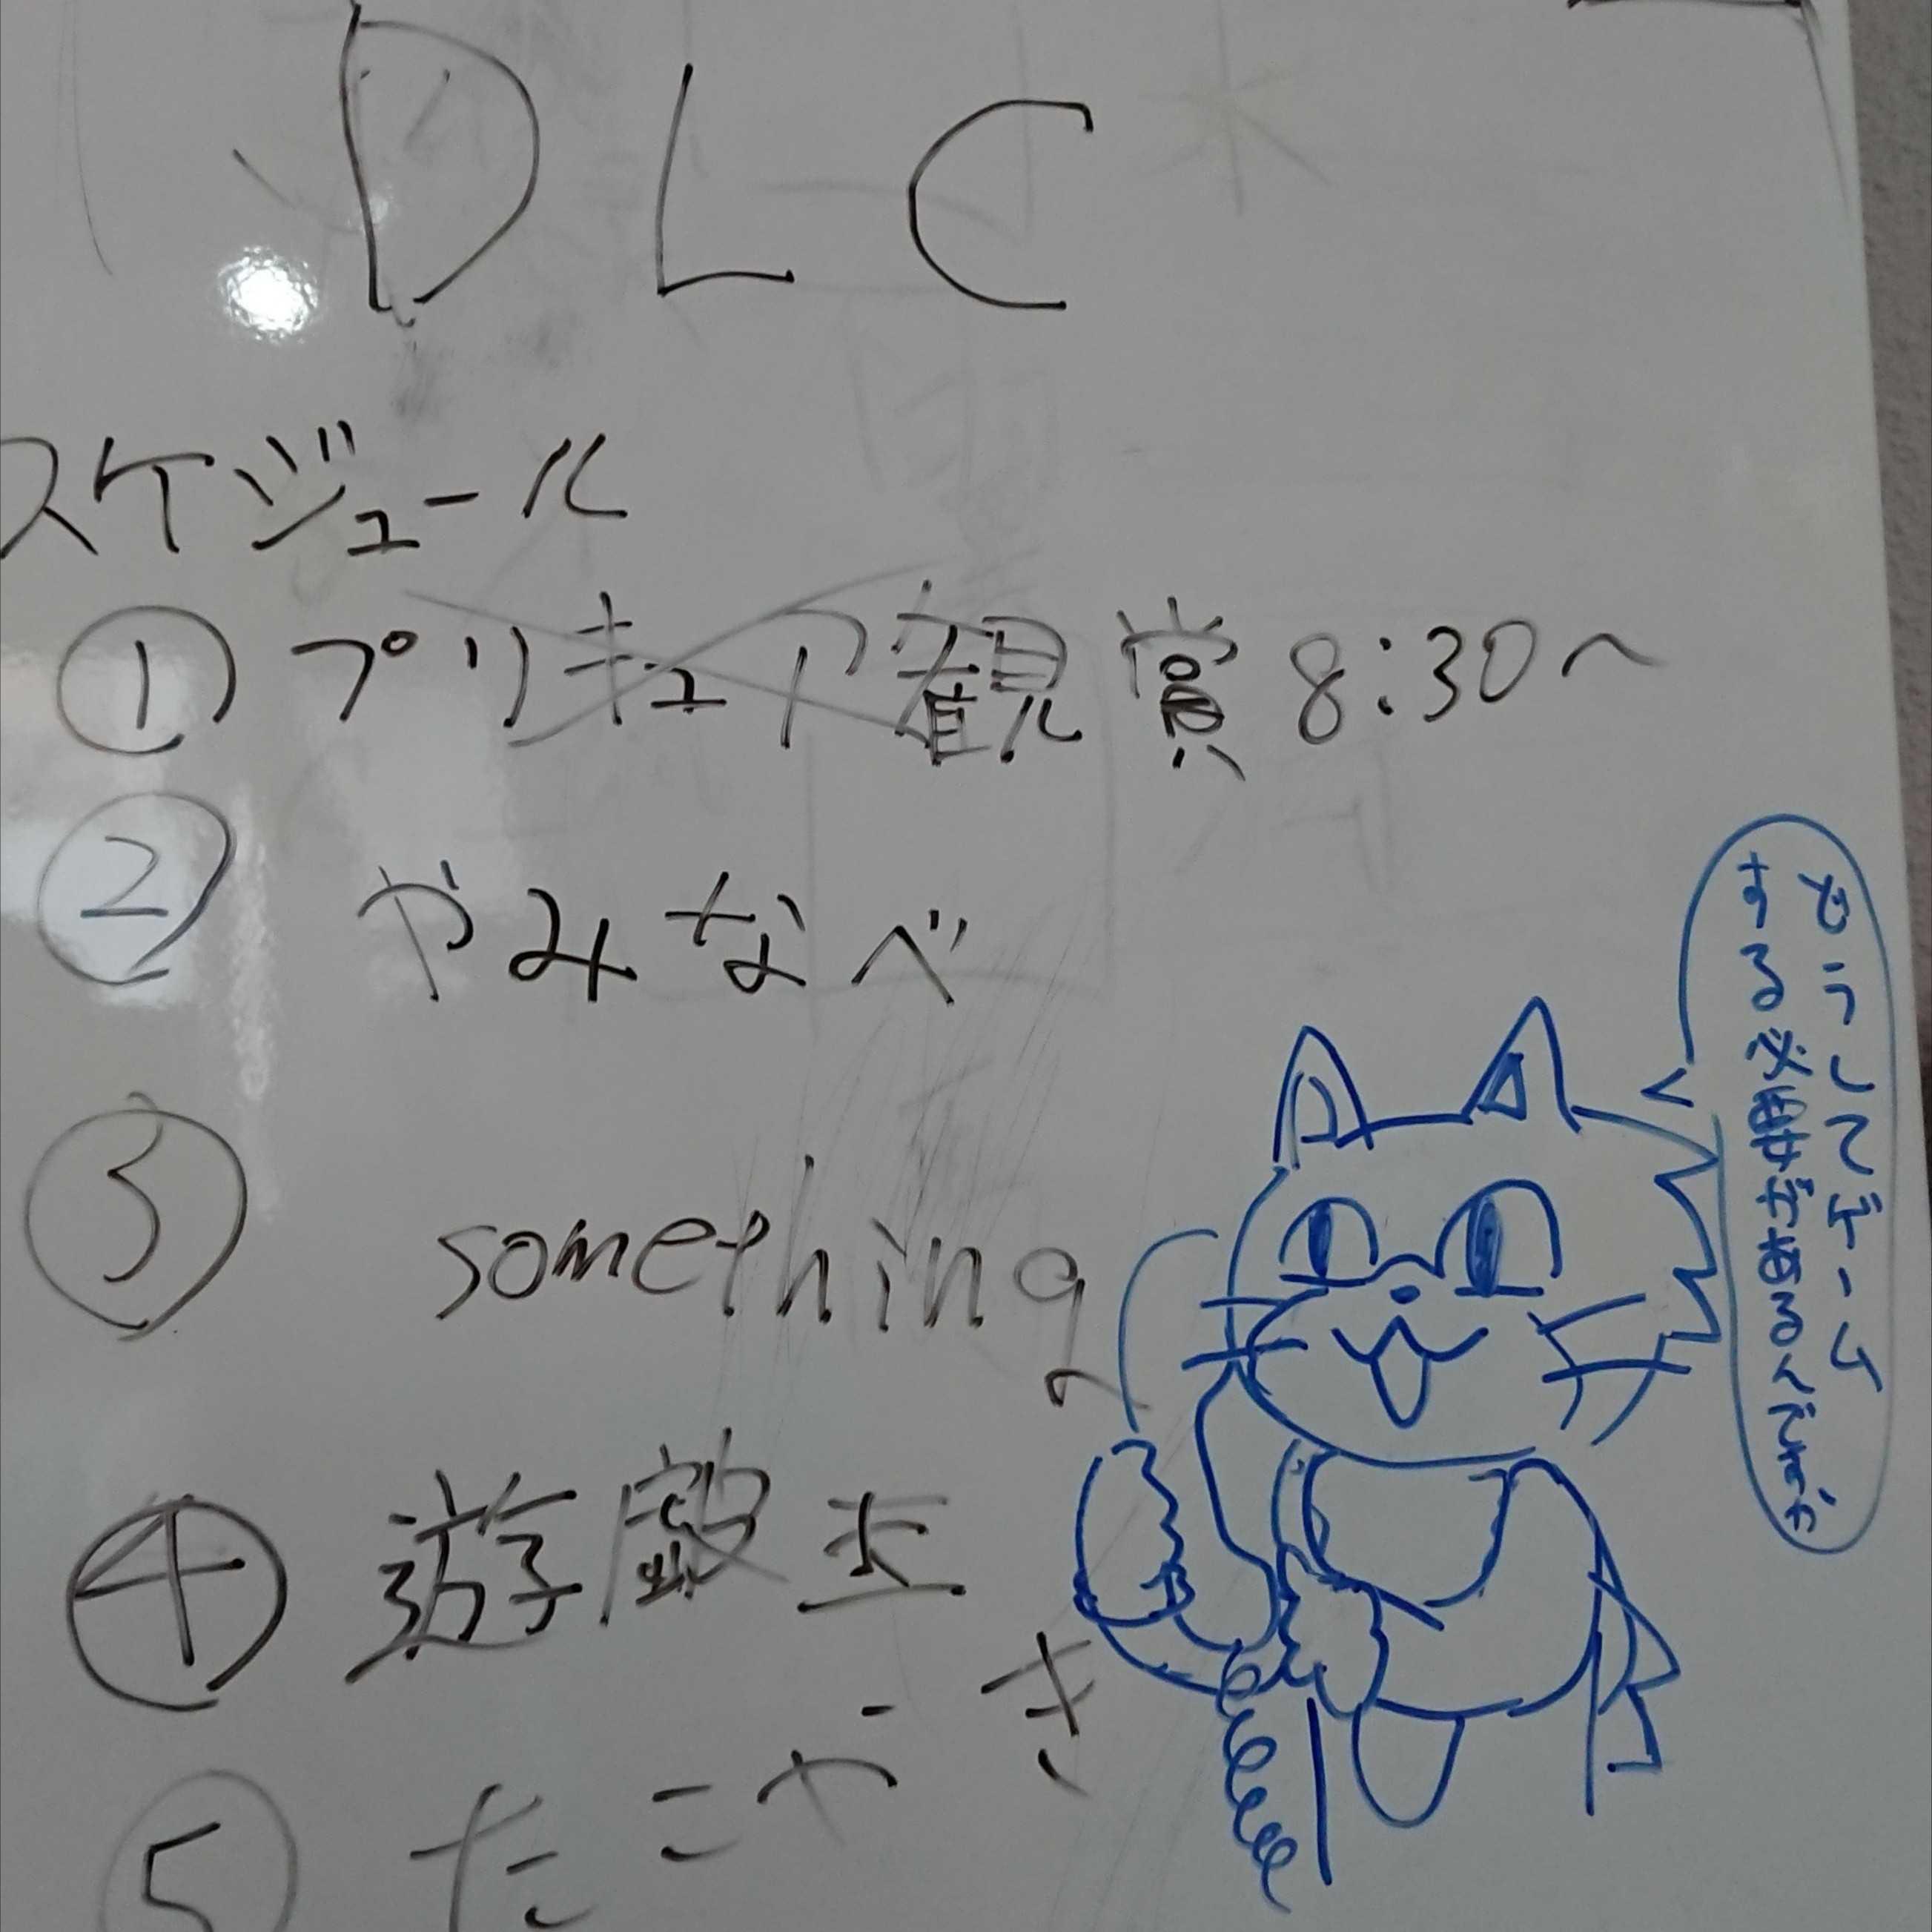 DLC
スケジュール
① プリキュア観賞 8:30〜
② やみなべ
③ something
④ 遊戯王
⑤ たこやき
どうしてゲーム
する必要があるんですか